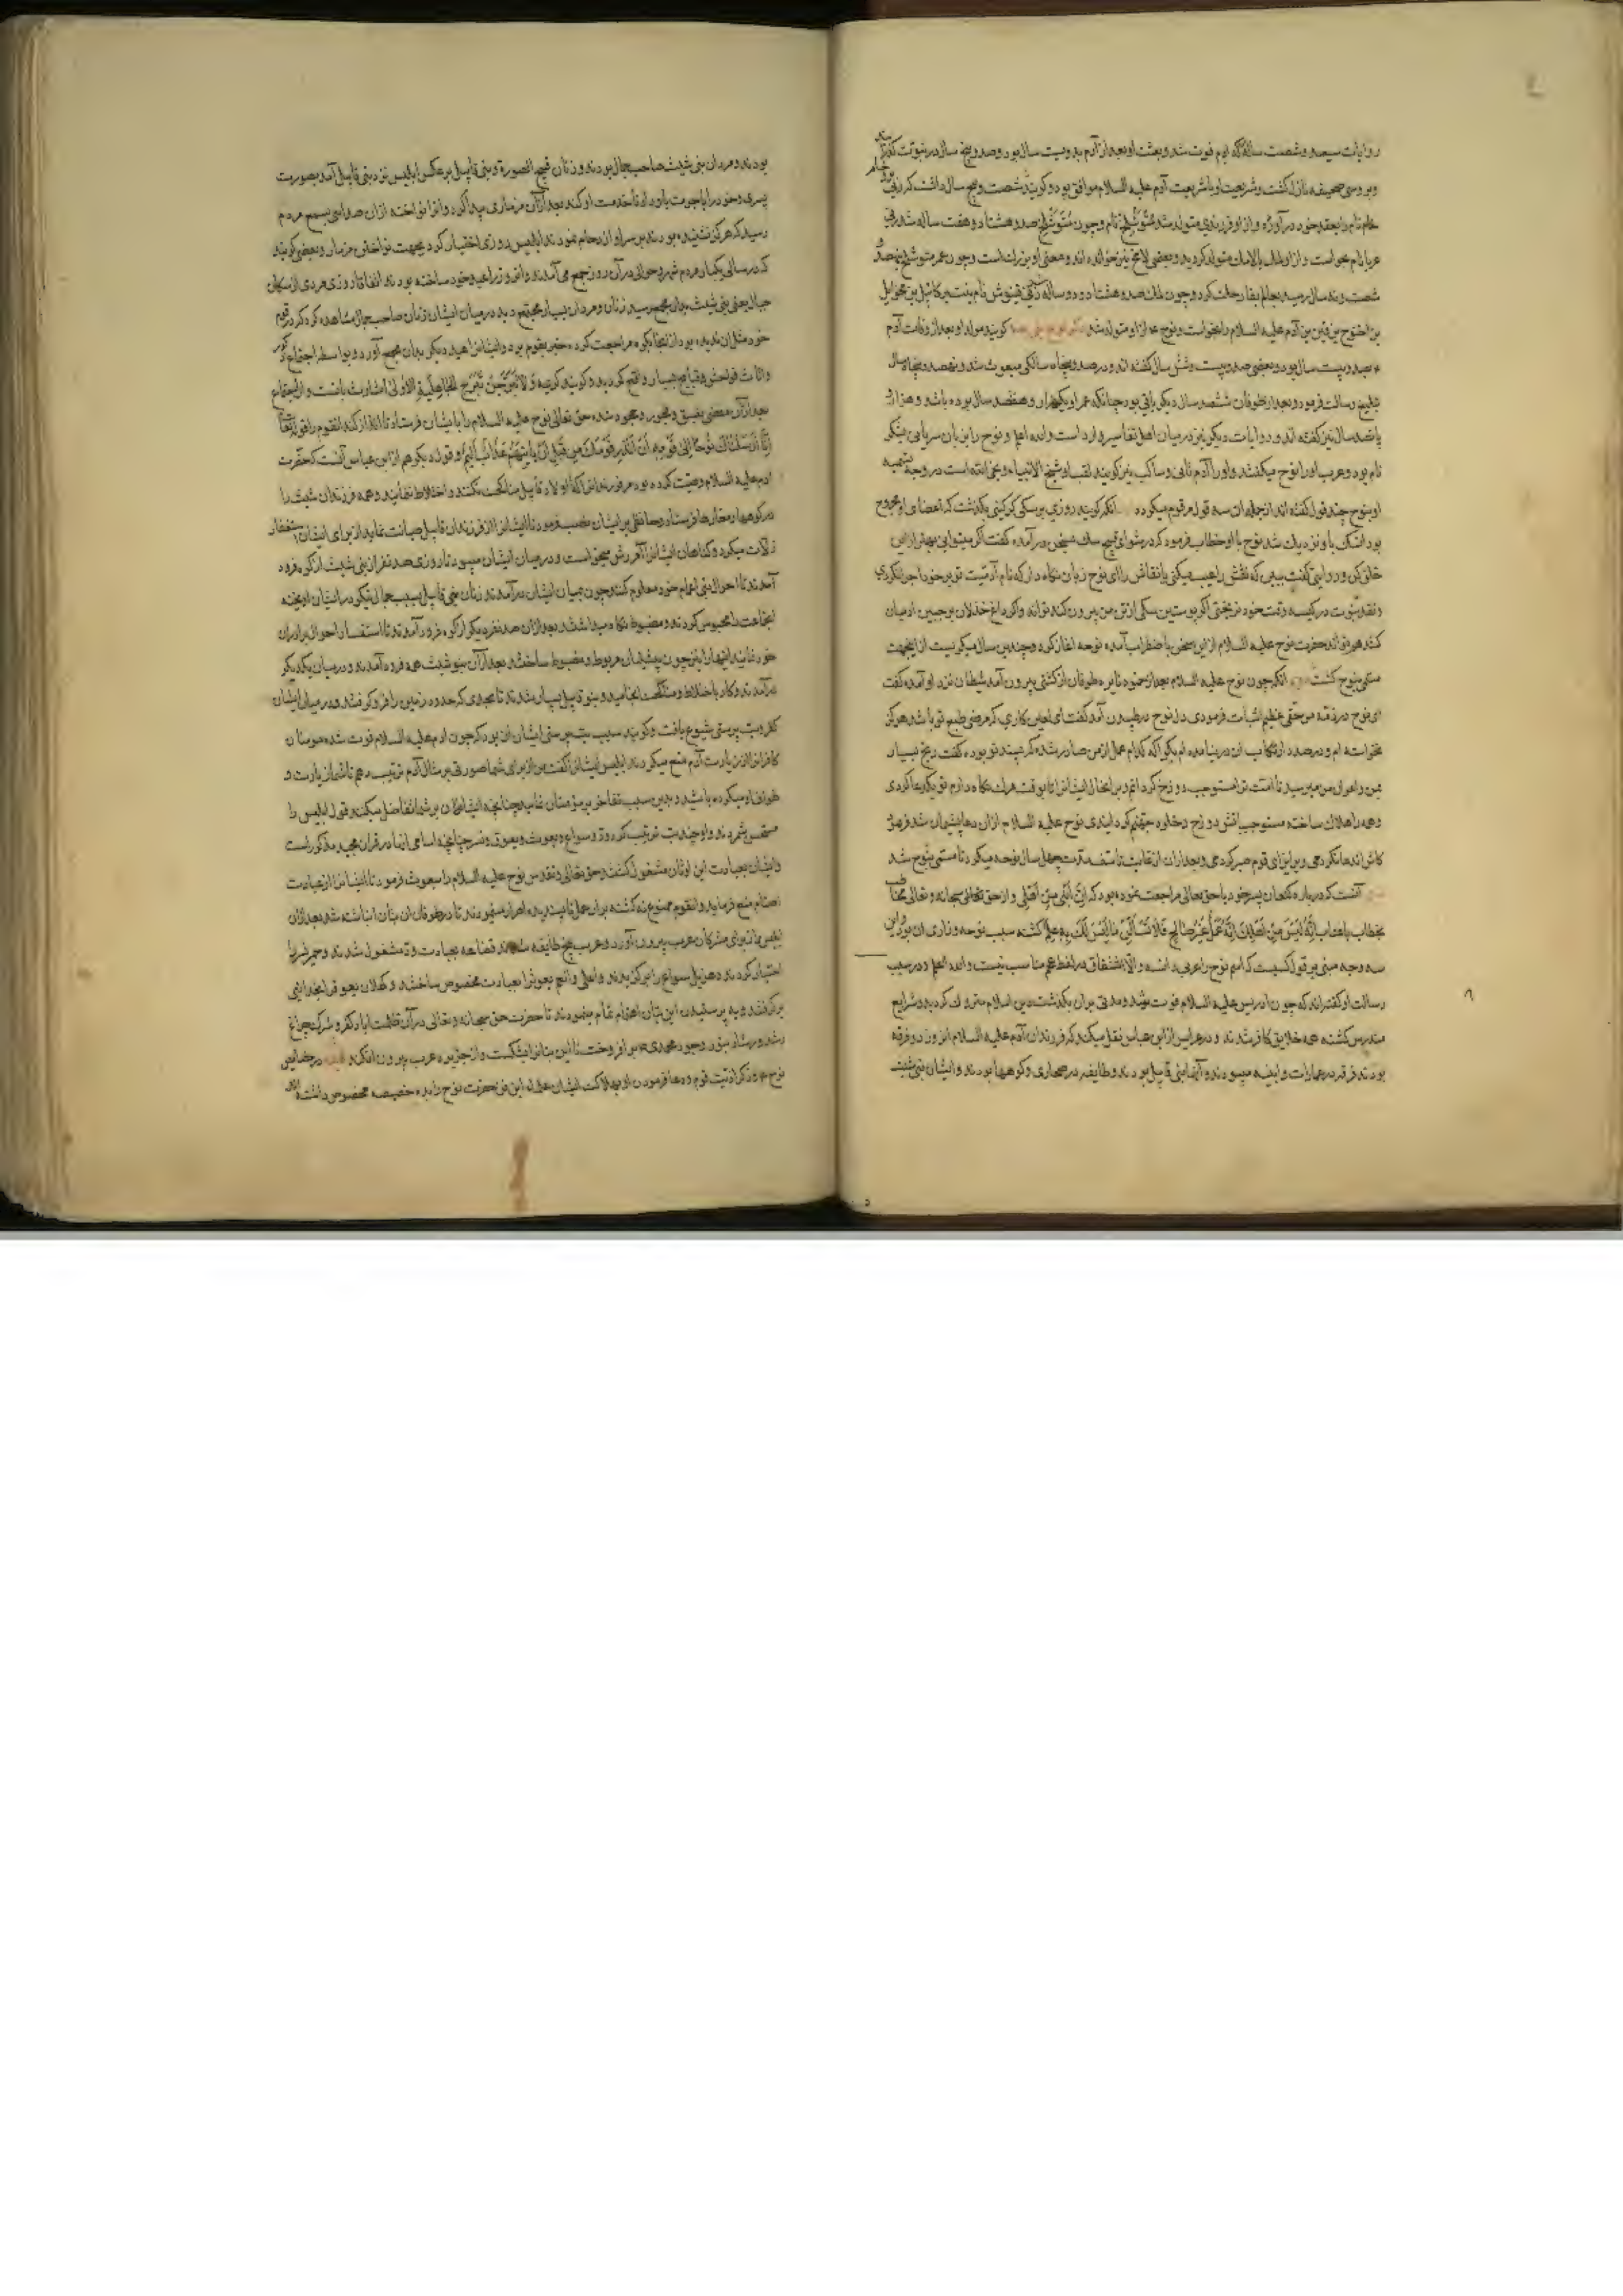 روایات سیصد و شصت ساله که آدم فوت شد و بعثت او بعد از آدم بدویست سال بود و صد و پنج سال در نبوت
و برو سی صحیفه نازل گشت و شریعت او با شریعت آدم علیه السلام موافق بود و کویند شصت و پنج سال داشت که زنی
نام را بعقد خود در آورد و از او فرزندی متولد شد متوشلخ نام و چون متوشلخ صد و هشتاد و هفت ساله شد زنی
عربا نام بخواست و از او لمك متولد کردید و بعضی لامخ نیز خوانده اند و چون عمر متوشلخ بنهصد و
شصت و نه سال رسید بعالم بقا رحلت کرد و چون لمك صد و هشتاد و دو ساله قینوش نام بنت
بن اخنوخ بن قین بن آدم علیه السلام را بخواست و نوح ع از او متولد شد کویند مولد او بعد از وفات آدم
بصد و بیست سال بود و بعضی صد و بیست و شش سال گفته اند و در صد و پنجاه سالکی مبعوث شد و نهصد و پنجاه سال
تبلیغ رسالت فرمود و بعد از طوفان ششصد سال دیگر باقی بود چنانکه عمر او یکهزار و هفتصد سال بوده باشد و هزار و
پانصد سال نیز گفته اند و روایات دیگر نیز در میان اهل تفاسیر وارد است والله اعلم و نوح را بزبان سریانی یشکر
نام بود و عرب او را نوح میکفتند و او را آدم ثانی و ساکب نیز کویند لقب او شیخ الانبیاء و نجی الله است در وجه تسمیه
او بنوح چند قول گفته اند از جمله آن سه قول مرقوم میکردد آنکه کویند روزی بر سکی کرکین بگذشت که اعضای او مجروح
بود نوح با او خطاب فرمود که در شو ای قبیح سك بسخن در آمده کفت اکر میتوانی بهتر از این
خلق کن و در روایتی گفت ببین که نقش را عیب میکنی یا نقاش را ای نوح زبان نکاه دار که نام آدمیت تو بر خود اجرا نکردی
و نقد نبوت در کیسه وقت خود نریختی اکر پوستین سکی از تن من بیرون کند تواند و اکر داغ خذلان بر جبین آدمیان
کشد هم تواند حضرت نوح علیه السلام از این سخن باضطراب آمده نوحه آغاز کرد و چندین سال میکریست از اینجهت
مسمی بنوح گشت آنکه چون نوح علیه السلام بعد از طوفان از کشتی بیرون آمد شیطان نزد او آمده کفت
ای نوح در ذمه من حقی عظیم اثبات فرمودی دل نوح در طپیدن آمد کفت ای لعین کاری که مرضی طبع تو باشد هرکز
نخواسته ام و در صدد ارتکاب آن در نیامده ام بگو که کدام عمل از من صادر شده که پسند تو بوده کفت رنج بسیار
بمن و اعوان من میرسید تا امت ترا مستوجب دوزخ کردانیم و بر انحال ایشانرا تا بوقت مرك نکاه داریم تو یکدعا کردی
و همه را هلاك ساخته مستوجب آتش دوزخ و خلود جهنم کردانیدی نوح علیه السلام از آن دعا پشیمان شد فرمود
کاش دعا نکردمی و بر ایذای قوم صبر کردمی و بعد از آن از غایت تاسف مدت چهل سال نوحه میکرد تا مسمی بنوح شد
آنست که درباره کنعان پسر خود با حق تعالی مراجعت نموده بود که إِنَّ ابْنِي مِنْ أَهْلِي و از حق سبحانه و تعالی مخاطب
بخطاب با عتاب إِنَّهُ لَيْسَ مِنْ أَهْلِكَ إِنَّهُ عَمَلٌ غَيْرُ صَالِحٍ فَلَا تَسْأَلْنِي مَا لَيْسَ لَكَ بِهِ عِلْمٌ کشته سبب نوحه و زاری آن بود و این
سه وجه مبنی بر قول کسیست که اسم نوح را عربی دانسته والا اشتقاق در لفظ عجم مناسب نیست والله اعلم و در سبب
رسالت او گفته اند که چون ادریس علیه السلام فوت شد و مدتی بر آن بگذشت دین اسلام متروك کردید و شرایع
مندرس کشته همه خلایق کافر شدند و در عرایس از ابن عباس نقل میکند که فرزندان آدم علیه السلام دو فرقه
بودند فرقه در عمارات و ابنیه میبودند و آنها بنی قابیل بودند و طایفه در صحاری و کوهها بودند و ایشان بنی شیث
٨
بودند و مردان بنی شیث صاحب جمال بودند و زنان قبیح الصورة و بنی قابیل بر عکس ابلیس نزد بنی قابیل آمد بصورت
پسری و خود را باجرت باو داد تا خدمت او کند بعد از آن مزماری پیدا کرد و آنرا نواخته از آن صدائی بسمع مردم
رسید که هرکز نشنیده بودند بر سر او ازدحام نمودند ابلیس روزی اختیار کرد بجهت نواختن مزمار و بعضی کویند
که در سالی یکبار مردم شهر و حوالی در آن روز جمع می آمدند و آنروز را عید خود ساخته بودند اتفاقا روزی مردی از سکان
جبال یعنی بنی شیث بدان مجمع رسید زنان و مردان بسیار مجتمع دید در میان ایشان زنان صاحب جمال مشاهده کرد که در قوم
خود مثل آن ندیده بود از آنجا بکوه مراجعت کرده خبر بقوم برد و ایشانرا عید دیگر بدان مجمع آورد و بواسطه اجتماع ذکور
و اناث فواحش و قبایح بسیار واقع کردید و کویند کریمه وَلَا تَبَرَّجْنَ تَبَرُّجَ الْجَاهِلِيَّةِ الْأُولَى اشارت بآنست
بعد از آن مفضی بفسق و فجور و جحود شده حق تعالی نوح علیه السلام را بایشان فرستاد تا انذار کند آنقوم را قوله تعالی
إِنَّا أَرْسَلْنَا نُوحًا إِلَى قَوْمِهِ أَنْ أَنْذِرْ قَوْمَكَ مِنْ قَبْلِ أَنْ يَأْتِيَهُمْ عَذَابٌ أَلِيمٌ و قول دیگر هم از ابن عباس آنست که حضرت
آدم علیه السلام وصیت کرده بود فرزندانش را که با اولاد قابیل مناکحت نکنند و اختلاط ننمایند و همه فرزندان شیث را
در کوهها و مغارها فرستاد و حافظی بر ایشان نصب فرمود تا ایشانرا از فرزندان قابیل صیانت نماید از برای ایشان استغفار
زلات میکرد و گناهان ایشانرا آمرزش میخواست و در میان ایشان میبود تا روزی صد نفر از بنی شیث از کوه فرود
آمدند تا احوال بنی اعمام خود معلوم کنند چون بمیان ایشان در آمدند زنان بنی قابیل بسبب جمال نیکو در ایشان آویخته
آنجماعت را محبوس کردند و مضبوط نکاه داشتند بعد از آن صد نفر دیگر از کوه فرود آمدند تا استفسار احوال برادران
خود نمایند آنها را نیز چون پیشینیان مربوط و مضبوط ساختند بعد از آن بنو شیث همه فرود آمدند و در میان یکدیگر
در آمدند و کار باختلاط و مناکحت انجامید و بنو قابیل بسیار شدند تا بحدی که حدود زمین را فرو کرفتند و در میان ایشان
کفر و بت پرستی شیوع یافت و کویند سبب بت پرستی ایشان آن بود که چون آدم علیه السلام فوت شد مومنان
کافرانرا از زیارت آدم منع میکردند ابلیس ایشانرا گفت من از برای شما صورتی بر مثال آدم ترتیب دهم تا شما زیارت و
طواف او میکرده باشید و بدین سبب تفاخر بر مؤمنان نمایید چنانچه ایشان بر شما تفاضل میکنند قول ابلیس را
مستحسن شمردند و او چند بت ترتیب کرد ود و سواع و یغوث و یعوق و نسر چنانچه اسامی آنها در قرآن مجید مذکور است
و ایشان بعبادت این اوثان مشغول گشتند حق تعالی و تقدس نوح علیه السلام را مبعوث فرمود تا ایشانرا از عبادت
اصنام منع فرماید و آنقوم ممنوع نه کشته بر آن عمل ناپسندیده اصرار مینمودند تا در طوفان آن بتان انباشته شد بعد از آن
ابلیس آنها را برای مشرکان عرب بیرون آورد و عرب پنج طایفه شدند قضاعه بعبادت ود مشغول شدند و حمیر نسر را
اختیار کردند و هذیل سواع را برکزیدند و یغوثرا بعبادت مخصوص ساختند و کهلان یعوق را بخدائی
برکرفتند و به پرستیدن این بتان اهتمام تمام مینمودند تا حضرت حق سبحانه و تعالی در آن ظلمت آباد کفر و شرك چراغ
رشد و رشاد بنور وجود محمدی ص بر افروخت تا این بتانرا بشکست و از جزیره عرب بیرون افکند در خصایص
نوح ع و ذکر اذیت قوم و دعا فرمودن او بهلاکت ایشان حضرت نوح را بده خصیصه مخصوص داشته